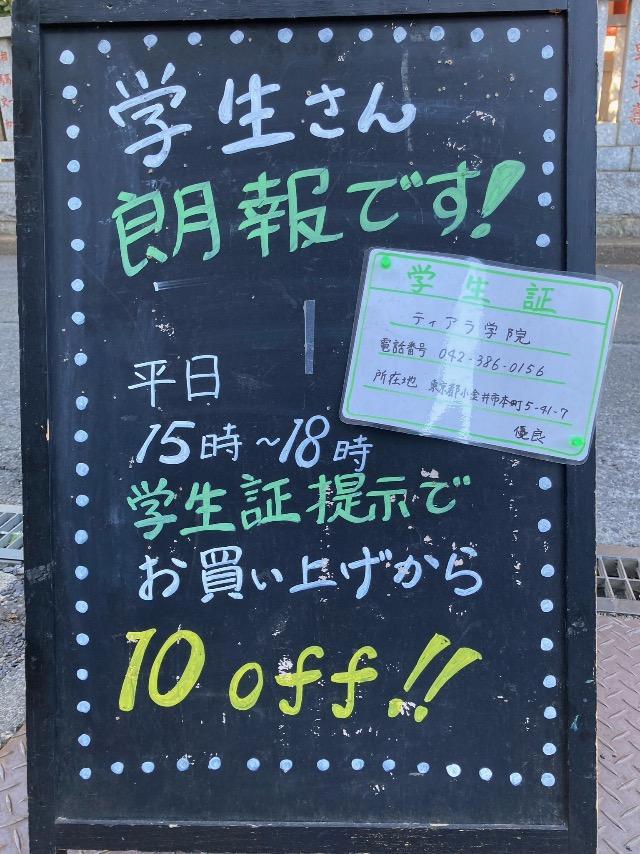 学生さん
朗報です!
学生証
ティアラ学院
電話番号 042-386-0156
所在地 東京都小金井市本町5-41-7
優良
平日
15時~18時
学生証提示で
お買い上げから
10 off!!